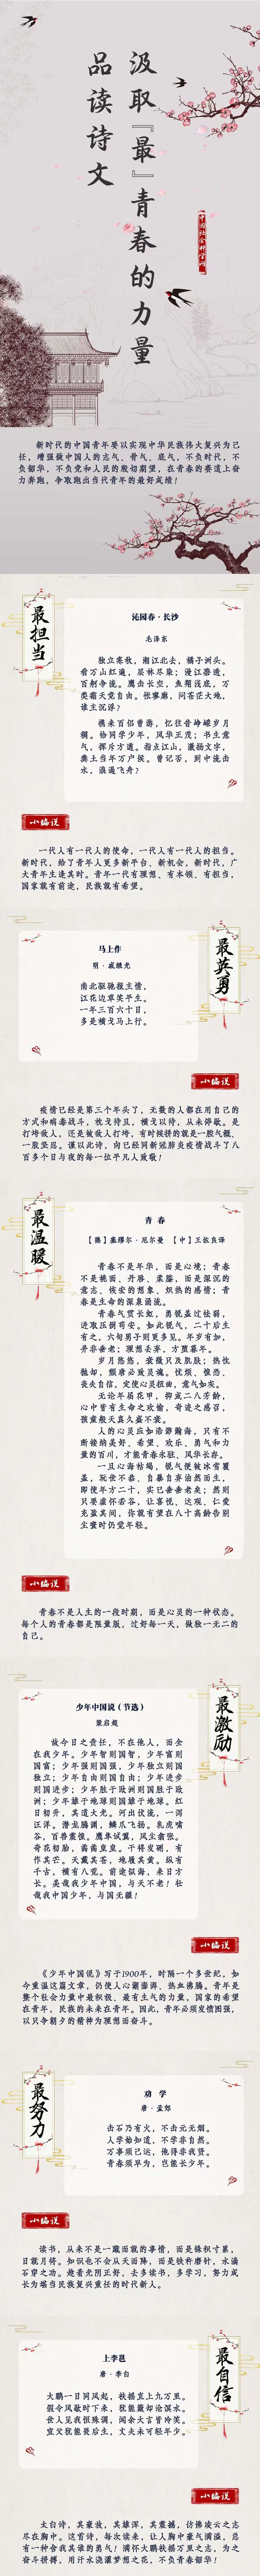 汲取『最』青春的力量
品读诗文
中国社会科学网
新时代的中国青年要以实现中华民族伟大复兴为己
任，增强做中国人的志气、骨气、底气，不负时代，不
负韶华，不负党和人民的殷切期望，在青春的赛道上奋
力奔跑，争取跑出当代青年的最好成绩！
最担当
沁园春·长沙
毛泽东
独立寒秋，湘江北去，橘子洲头。
看万山红遍，层林尽染；漫江碧透，
百舸争流。鹰击长空，鱼翔浅底，万
类霜天竞自由。怅寥廓，问苍茫大地，
谁主沉浮？
携来百侣曾游，忆往昔峥嵘岁月
稠。恰同学少年，风华正茂；书生意
气，挥斥方遒。指点江山，激扬文字，
粪土当年万户侯。曾记否，到中流击
水，浪遏飞舟？
小编说
一代人有一代人的使命，一代人有一代人的担当。
新时代，给了青年人更多新平台、新机会，新时代，广
大青年生逢其时。青年一代有理想、有本领、有担当，
国家就有前途，民族就有希望。
最英勇
马上作
明·戚继光
南北驱驰报主情，
江花边草笑平生。
一年三百六十日，
多是横戈马上行。
小编说
疫情已经是第三个年头了，无数的人都在用自己的
方式和病毒战斗，枕戈待旦，横戈以待，从未停歇。是
打垮敌人，还是被敌人打垮，有时候拼的就是一股气概、
一股坚忍。谨以此诗，向已经同新冠肺炎疫情战斗了八
百多个日与夜的每一位平凡人致敬！
最温暖
青 春
【德】塞缪尔·厄尔曼 【中】王佐良译
青春不是年华，而是心境；青春
不是桃面、丹唇、柔膝，而是深沉的
意志，恢宏的想象，炽热的感情；青
春是生命的深泉涌流。
青春气贯长虹，勇锐盖过怯弱，
进取压倒苟安。如此锐气，二十后生
有之，六旬男子则更多见。年岁有加，
并非垂老；理想丢弃，方堕暮年。
岁月悠悠，衰微只及肌肤；热忱
抛却，颓唐必致灵魂。忧烦、惶恐、
丧失自信，定使心灵扭曲，意气如灰。
无论年届花甲，抑或二八芳龄，
心中皆有生命之欢愉，奇迹之感召，
孩童般天真久盛不衰。
人的心灵应如浩渺瀚海，只有不
断接纳美好、希望、欢乐、勇气和力
量的百川，才能青春永驻、风华长存。
一旦心海枯竭，锐气便被冰雪覆
盖，玩世不恭、自暴自弃油然而生，
即使年方二十，实已垂垂老矣；然则
只要虚怀若谷，让喜悦、达观、仁爱
充盈其间，你就有望在八十高龄告别
尘寰时仍觉年轻。
小编说
青春不是人生的一段时期，而是心灵的一种状态。
每个人的青春都是限量版，过好每一天，做独一无二的
自己。
最激励
少年中国说（节选）
梁启超
故今日之责任，不在他人，而全
在我少年。少年智则国智，少年富则
国富；少年强则国强，少年独立则国
独立；少年自由则国自由；少年进步
则国进步；少年胜于欧洲则国胜于欧
洲；少年雄于地球则国雄于地球。红
日初升，其道大光。河出伏流，一泻
汪洋。潜龙腾渊，鳞爪飞扬。乳虎啸
谷，百兽震惶。鹰隼试翼，风尘翕张。
奇花初胎，矞矞皇皇。干将发硎，有
作其芒。天戴其苍，地履其黄。纵有
千古，横有八荒。前途似海，来日方
长。美哉我少年中国，与天不老！壮
哉我中国少年，与国无疆！
小编说
《少年中国说》写于1900年，时隔一个多世纪，如
今重温这篇文章，仍使人心潮澎湃、热血沸腾。青年是
整个社会力量中最积极、最有生气的力量，国家的希望
在青年，民族的未来在青年。因此，青年必须发愤图强，
以只争朝夕的精神为理想而奋斗。
最努力
劝 学
唐·孟郊
击石乃有火，不击元无烟。
人学始知道，不学非自然。
万事须己运，他得非我贤。
青春须早为，岂能长少年。
小编说
读书，从来不是一蹴而就的事情，而是锱积寸累，
日就月将。知识也不会从天而降，而是铁杵磨针，水滴
石穿之功。趁着光阴正好，去多读书，多学习，努力成
长为堪当民族复兴重任的时代新人。
最自信
上李邕
唐·李白
大鹏一日同风起，扶摇直上九万里。
假令风歇时下来，犹能簸却沧溟水。
世人见我恒殊调，闻余大言皆冷笑。
宣父犹能畏后生，丈夫未可轻年少。
小编说
太白诗，其豪放，其雄浑，其震撼，仿佛凌云之志
尽在胸中。这首诗，每次读来，让人胸中豪气满溢，总
有一种舍我其谁的勇气！满怀大鹏扶摇万里之志，为之
奋斗拼搏，用汗水浇灌梦想之花，不负青春韶华！